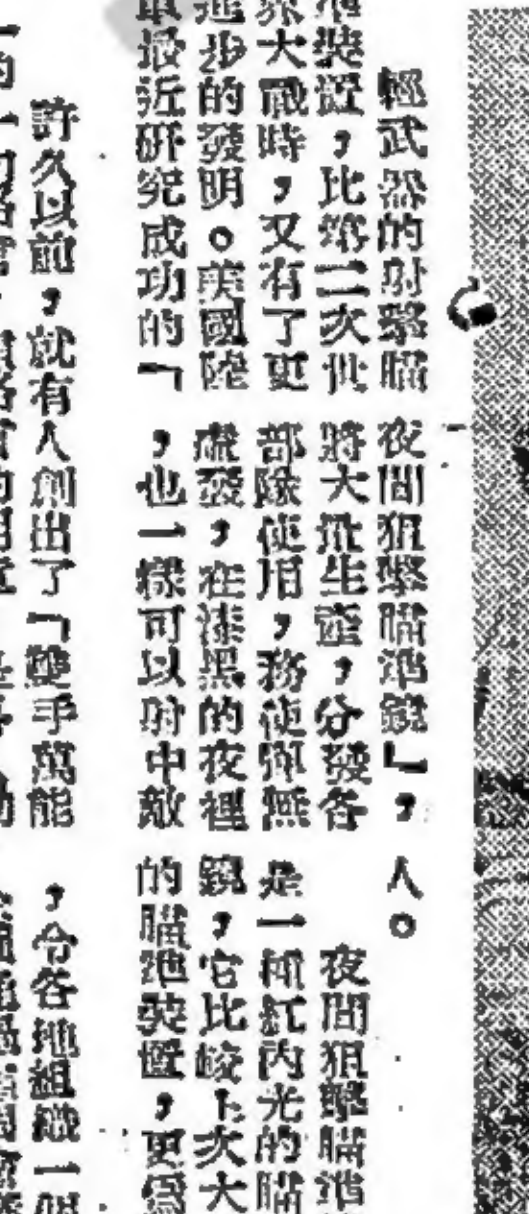 輕武器的射擊瞄
準裝置,比第二次世
界大戰時,又有了更
進步的發明。美國陸
軍最近研究成功的「
夜間狙擊瞄準鏡」,
將大批生產,分發各
部隊使用,務使彈無
虛發,在漆黑的夜裡
,也一樣可以射中敵
人。
夜間狙擊瞄準
是一種紅內光的瞄
鏡,它比較上次大
的瞄準裝置,更為
許久以前,就有人創出了「雙手萬能
,令各地組織一個